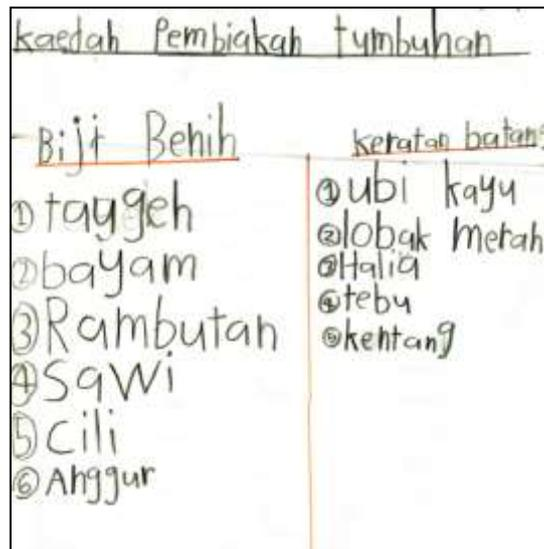 kaedah Pembiakan tumbuhan
Biji Benih
① taugeh
② bayam
③ Rambutan
④ Sawi
⑤ Cili
⑥ Anggur
keratan batang
① ubi kayu
② lobak merah
③ Halia
④ tebu
⑤ kentang